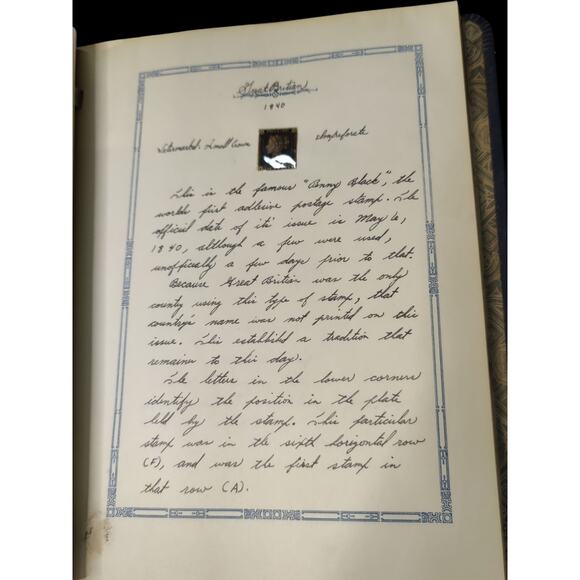 Great Britian
1840
Watermarked: Small Crown
Imperforate
This is the famous "Penny Black", the
worlds first adhesive postage stamp. The
official date of its' issue is May 6,
1840, although a few were used,
unofficially a few days prior to that.
Because Great Britian was the only
county using this type of stamp, that
country's name was not printed on this
issue. This establishd a tradition that
remains to this day.
The letters in the lower corners
identify the position in the plate
held by the stamp. This particular
stamp was in the sixth horizontal row
(F), and was the first stamp in
that row (A).